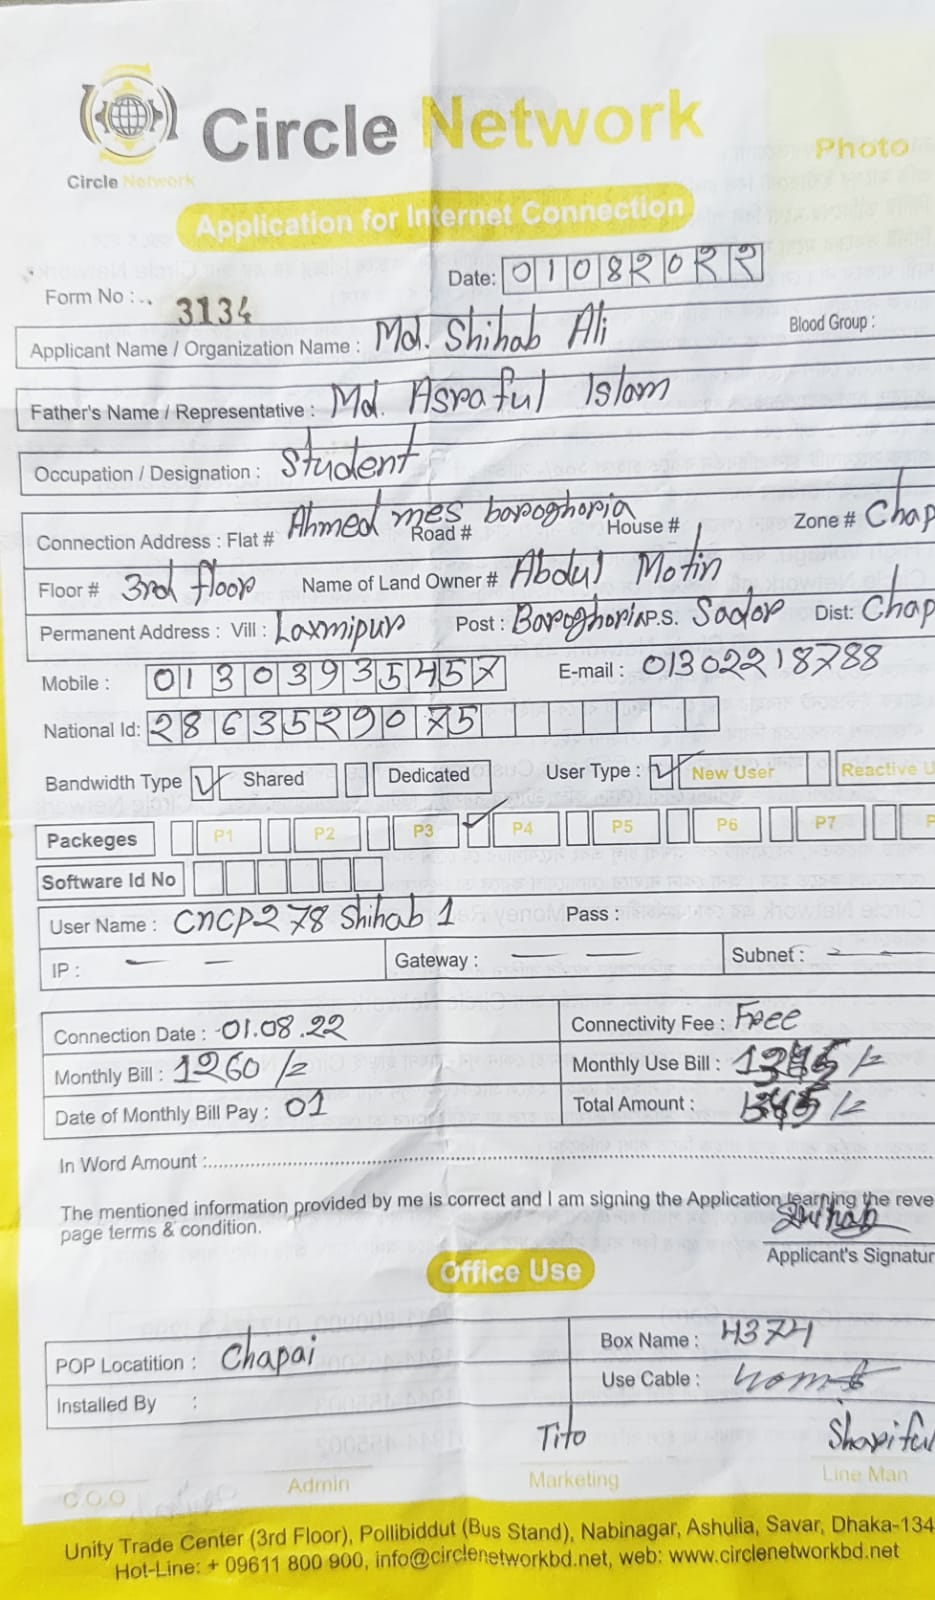 Circle Network
Circle Network
Photo
Application for Internet Connection
Date: 01082022
Form No : .. 3134
Applicant Name / Organization Name : Md. Shihab Ali Blood Group :
Father's Name / Representative : Md. Asraful Islam
Occupation / Designation : Student
Connection Address : Flat # Ahmed mes baroghoria Road # House # Zone # Chap
Floor # 3rd floor Name of Land Owner # Abdul Motin
Permanent Address : Vill : Laxmipur Post : Baroghoria P.S. Sador Dist: Chap
Mobile : 01303935457 E-mail : 01302218788
National Id: 2863529075
Bandwidth Type Shared Dedicated User Type : New User Reactive U
Packeges P1 P2 P3 P4 P5 P6 P7 P
Software Id No
User Name : CNCP278 Shihab 1 Pass :
IP : — — Gateway : — — Subnet : — —
Connection Date : 01.08.22 Connectivity Fee : Free
Monthly Bill : 1260/= Monthly Use Bill :
Date of Monthly Bill Pay : 01 Total Amount :
In Word Amount :
The mentioned information provided by me is correct and I am signing the Application learning the reve
page terms & condition.
Shihab
Applicant's Signatur
Office Use
POP Locatition : Chapai Box Name : H374
Installed By : Use Cable :
Tito Shariful
C.O.O Admin Marketing Line Man
Unity Trade Center (3rd Floor), Pollibiddut (Bus Stand), Nabinagar, Ashulia, Savar, Dhaka-134
Hot-Line: + 09611 800 900, info@circlenetworkbd.net, web: www.circlenetworkbd.net